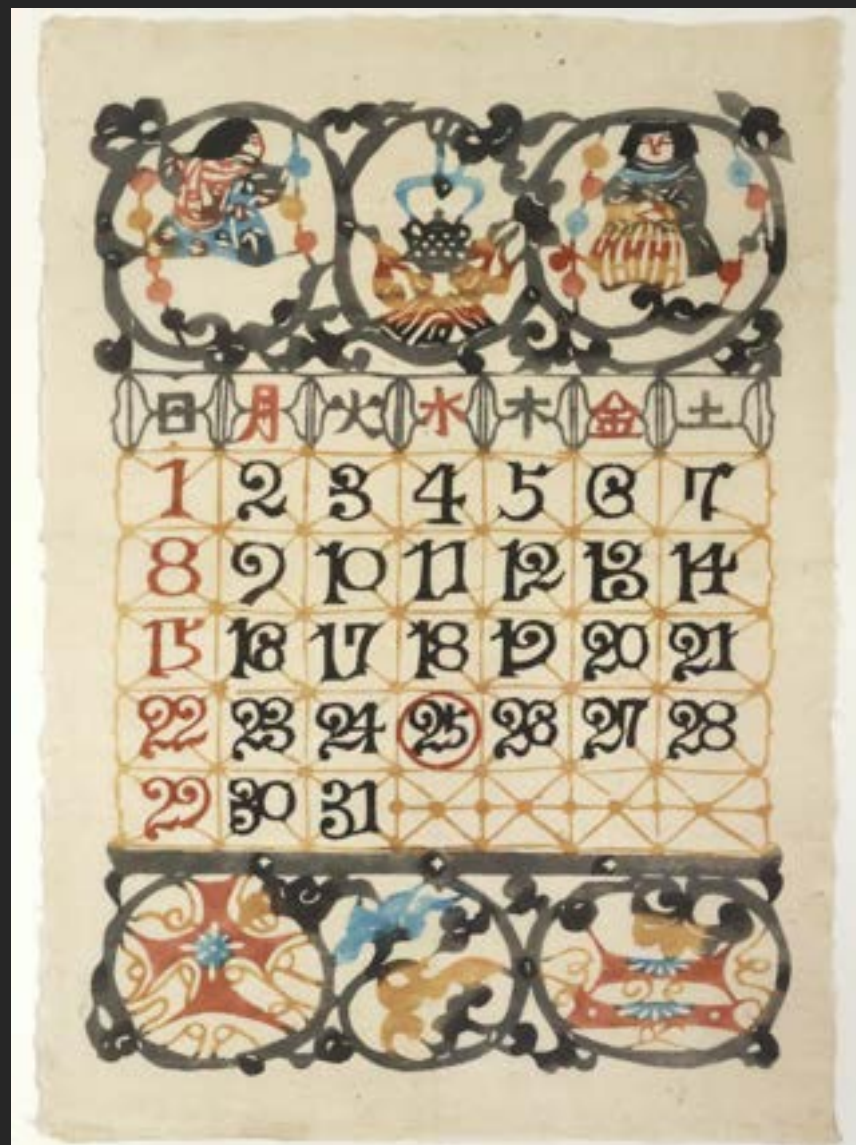 日 月 火 水 木 金 土
1 2 3 4 5 6 7
8 9 10 11 12 13 14
15 16 17 18 19 20 21
22 23 24 25 26 27 28
29 30 31